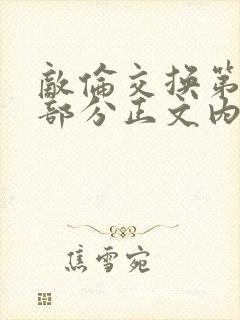 敵倫交換第
部分正文内
焦雪宛